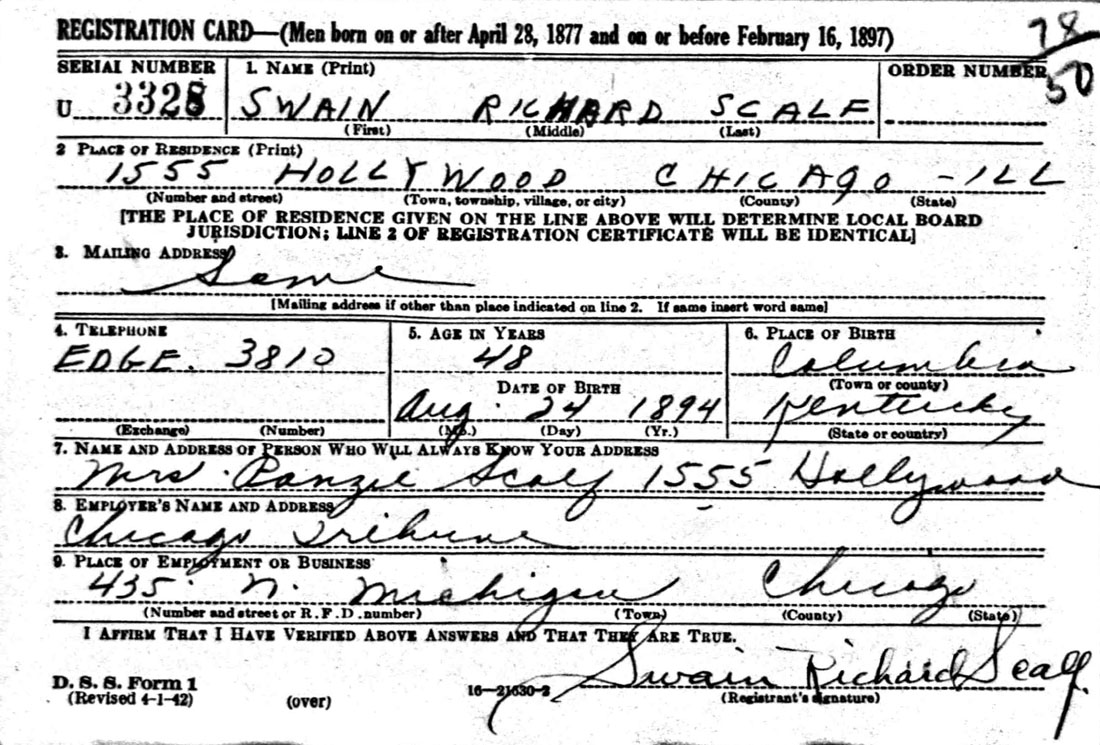 REGISTRATION CARD—(Men born on or after April 28, 1877 and on or before February 16, 1897)
78
50
SERIAL NUMBER
1. NAME (Print)
ORDER NUMBER
U 3328
SWAIN RICHARD SCALF
(First) (Middle) (Last)
2 PLACE OF RESIDENCE (Print)
1555 HOLLYWOOD CHICAGO - ILL
(Number and street) (Town, township, village, or city) (County) (State)
[THE PLACE OF RESIDENCE GIVEN ON THE LINE ABOVE WILL DETERMINE LOCAL BOARD
JURISDICTION; LINE 2 OF REGISTRATION CERTIFICATE WILL BE IDENTICAL]
3. MAILING ADDRESS
Same
[Mailing address if other than place indicated on line 2. If same insert word same]
4. TELEPHONE
EDGE. 3810
(Exchange) (Number)
5. AGE IN YEARS
48
DATE OF BIRTH
Aug. 24 1894
(Mo.) (Day) (Yr.)
6. PLACE OF BIRTH
Columbia
(Town or county)
Kentucky
(State or country)
7. NAME AND ADDRESS OF PERSON WHO WILL ALWAYS KNOW YOUR ADDRESS
Mrs. Panzie Scalf 1555 Hollywood
8. EMPLOYER'S NAME AND ADDRESS
Chicago Tribune
9. PLACE OF EMPLOYMENT OR BUSINESS
435 N. Michigan Chicago
(Number and street or R. F. D. number) (Town) (County) (State)
I AFFIRM THAT I HAVE VERIFIED ABOVE ANSWERS AND THAT THEY ARE TRUE.
Swain Richard Scalf.
D. S. S. Form 1
(Revised 4-1-42)
(over)
16—21630-2
(Registrant's signature)